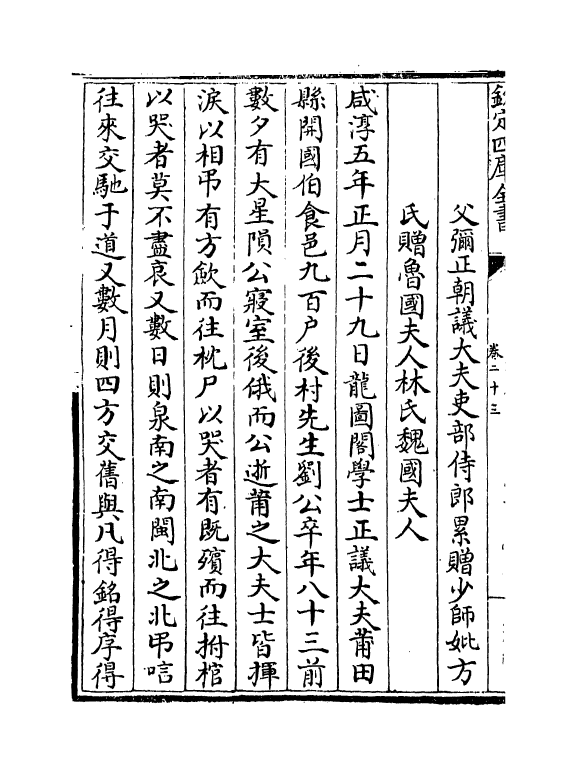 欽定四庫全書
卷二十三
父彌正朝議大夫吏部侍郎累贈少師妣方
氏贈魯國夫人林氏魏國夫人
咸淳五年正月二十九日龍圖閣學士正議大夫莆田
縣開國伯食邑九百户後村先生劉公卒年八十三前
數夕有大星隕公寢室後俄而公逝莆之大夫士皆揮
淚以相弔有方歛而往枕尸以哭者有既殯而往拊棺
以哭者莫不盡哀又數日則泉南之南閩北之北弔唁
往來交馳于道又數月則四方交舊與凡得銘得序得